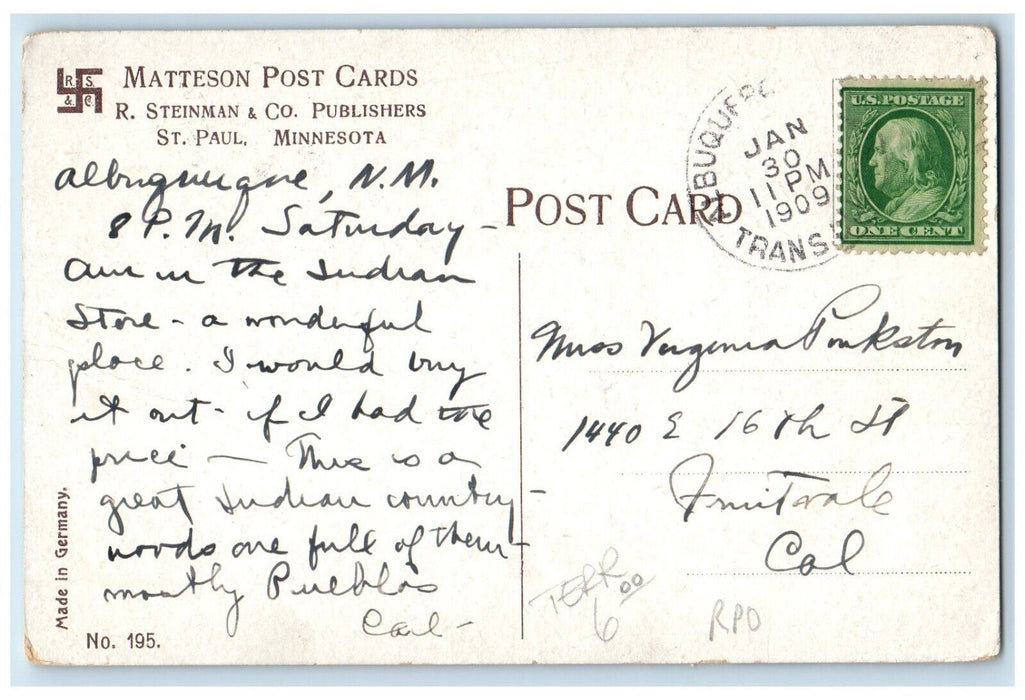 R. S.
& C.
MATTESON POST CARDS
R. STEINMAN & CO. PUBLISHERS
ST. PAUL, MINNESOTA
Albuquerque, N.M.
8 P.M. Saturday -
am in the Indian
Store - a wonderful
place. I would buy
it out - if I had the
price - This is a
great Indian country -
woods are full of them -
mostly Pueblos
Carl -
Made in Germany.
No. 195.
POST CARD
ALBUQUERQUE
JAN
30
11 PM
1909
TRANSF
U.S. POSTAGE
ONE CENT
Miss Virginia Pinkston
1440 E 16th St
Fruitvale
Cal
TERR
6 00
RPO